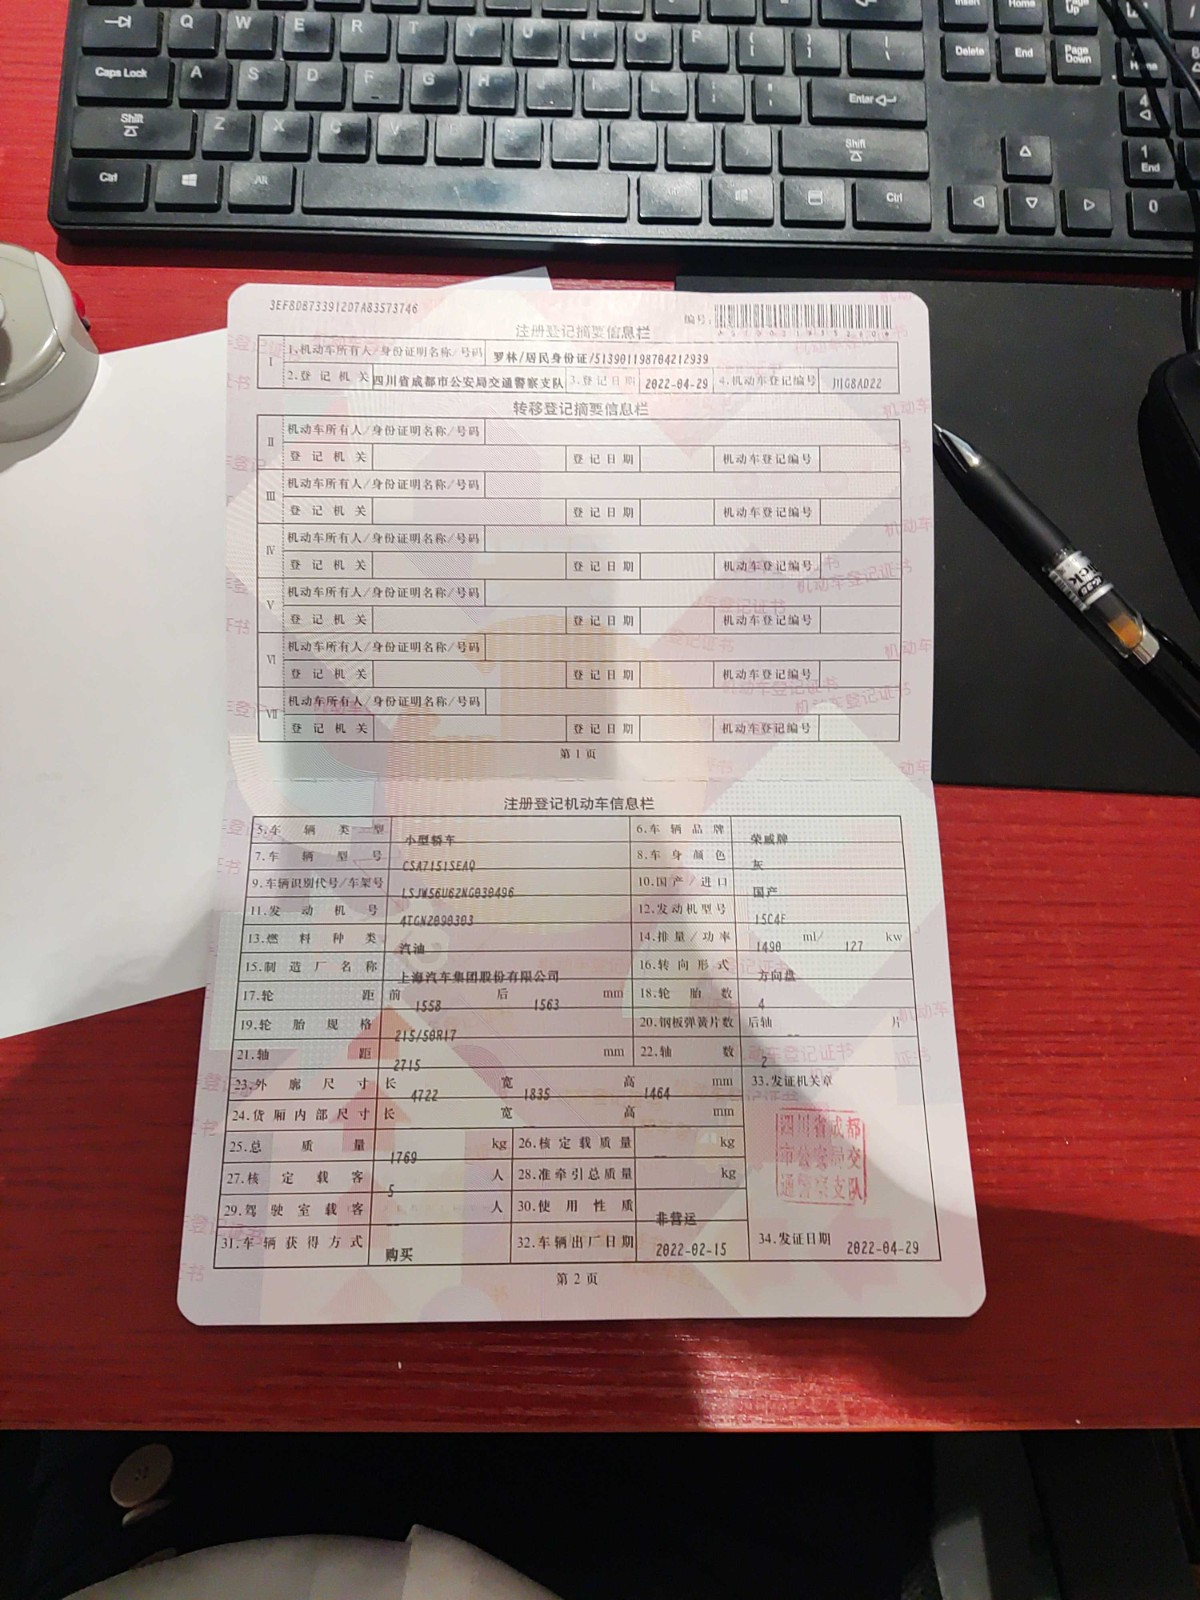 Q W E R T Y U I O P
Insert Home Page Up
Caps Lock A S D F G H J K L Enter
Delete End Page Down Home
Shift Z X C V B N M Shift
4
1 End
Ctrl Alt Ctrl 0
3EF80873391207A83573746
编号:
注册登记摘要信息栏
I 1.机动车所有人/身份证明名称/号码 罗林/居民身份证/513901198704212939
2.登记机关 四川省成都市公安局交通警察支队 3.登记日期 2022-04-29 4.机动车登记编号 川G8AD22
转移登记摘要信息栏
II 机动车所有人/身份证明名称/号码
登记机关 登记日期 机动车登记编号
III 机动车所有人/身份证明名称/号码
登记机关 登记日期 机动车登记编号
IV 机动车所有人/身份证明名称/号码
登记机关 登记日期 机动车登记编号
V 机动车所有人/身份证明名称/号码
登记机关 登记日期 机动车登记编号
VI 机动车所有人/身份证明名称/号码
登记机关 登记日期 机动车登记编号
VII 机动车所有人/身份证明名称/号码
登记机关 登记日期 机动车登记编号
第1页
注册登记机动车信息栏
5.车辆类型 小型轿车 6.车辆品牌 荣威牌
7.车辆型号 CSA7151SEAQ 8.车身颜色 灰
9.车辆识别代号/车架号 LSJW56U62NG030496 10.国产/进口 国产
11.发动机号 4TGN2090303 12.发动机型号 15C4E
13.燃料种类 汽油 14.排量/功率 1490 ml/ 127 kw
15.制造厂名称 上海汽车集团股份有限公司 16.转向形式 方向盘
17.轮距 前 1558 后 1563 mm 18.轮胎数 4
19.轮胎规格 215/50R17 20.钢板弹簧片数 后轴 -- 片
21.轴距 2715 mm 22.轴数 2
23.外廓尺寸 长 4722 宽 1835 高 1464 mm 33.发证机关章
24.货厢内部尺寸 长 宽 高 mm
四川省成都市公安局交通警察支队
25.总质量 1769 kg 26.核定载质量 -- kg
27.核定载客 5 人 28.准牵引总质量 kg
29.驾驶室载客 -- 人 30.使用性质 非营运
31.车辆获得方式 购买 32.车辆出厂日期 2022-02-15 34.发证日期 2022-04-29
第2页